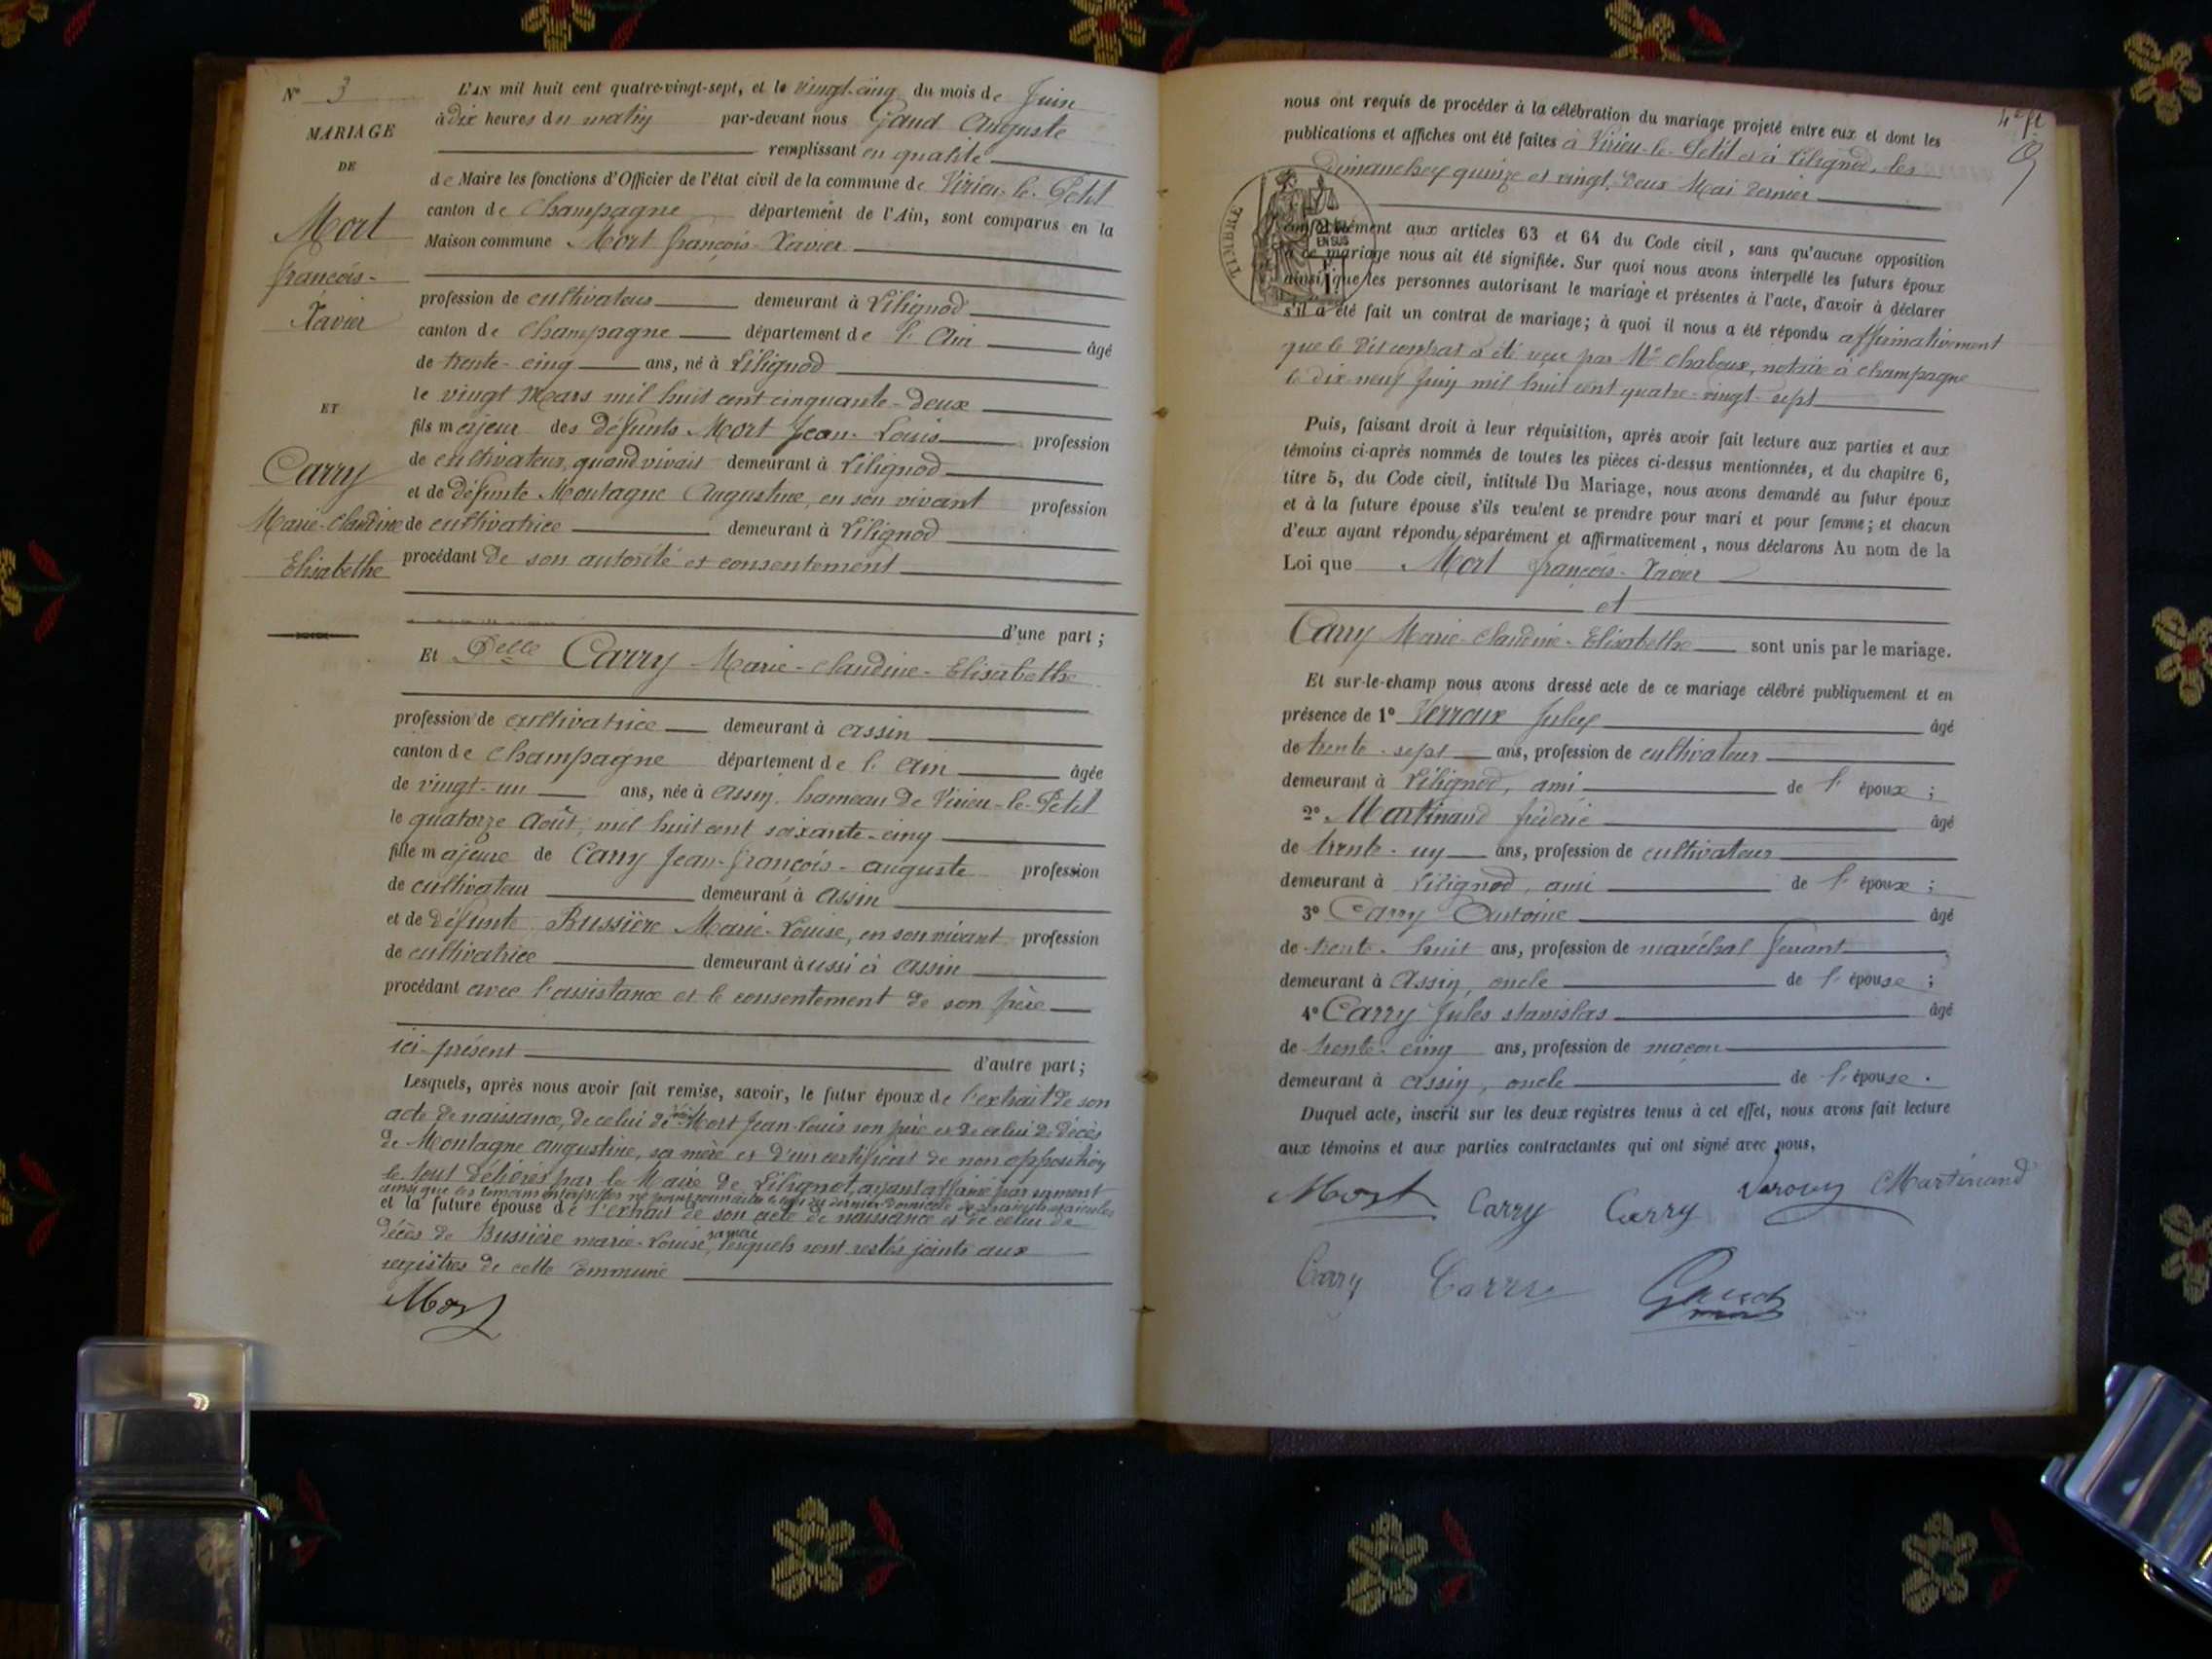 N° 3
MARIAGE
DE
Mort
françois-
Xavier
ET
Carry
Marie-Claudine
Elisabethe
L'AN mil huit cent quatre-vingt-sept, et le vingt-cinq du mois de Juin
à dix heures du matin par-devant nous Gaud Auguste
remplissant en qualité
de Maire les fonctions d'Officier de l'état civil de la commune de Virieu-le-Petit
canton de Champagne département de l'Ain, sont comparus en la
Maison commune Mort françois-Xavier
profession de cultivateur demeurant à Lilignod
canton de Champagne département de l'Ain âgé
de trente-cinq ans, né à Lilignod
le vingt Mars mil huit cent cinquante-deux
fils majeur des défunts Mort Jean-Louis profession
de cultivateur, quand vivait demeurant à Lilignod
et de défunte Montagne Augustine, en son vivant profession
de cultivatrice demeurant à Lilignod
procédant de son autorité et consentement
d'une part ;
Et Delle Carry Marie-Claudine-Elisabethe
profession de cultivatrice demeurant à Assin
canton de Champagne département de l'Ain âgée
de vingt-un ans, née à Assin, hameau de Virieu-le-Petit
le quatorze Août, mil huit cent soixante-cinq
fille majeure de Carry Jean-françois-auguste profession
de cultivateur demeurant à Assin
et de défunte Bussière Marie-Louise, en son vivant profession
de cultivatrice demeurant aussi à Assin
procédant avec l'assistance et le consentement de son père
ici-présent d'autre part ;
Lesquels, après nous avoir fait remise, savoir, le futur époux de l'extrait de son
acte de naissance, de celui de décès Mort Jean-Louis son père et de celui de décès
de Montagne Augustine, sa mère et d'un certificat de non opposition
le tout délivrés par le Maire de Lilignod, ayant affirmé par serment
ainsi que les témoins ne point connaitre le dernier domicile de
et la future épouse de l'extrait de son acte de naissance et de celui de
décès de Bussière marie-Louise, sa mère, lesquels sont restés joints aux
registres de cette commune
Mort
4e ft
nous ont requis de procéder à la célébration du mariage projeté entre eux et dont les
publications et affiches ont été faites à Virieu-le-Petit et à Lilignod, les
Dimanches quinze et vingt-deux Mai dernier
TIMBRE
EN SUS
conformément aux articles 63 et 64 du Code civil, sans qu'aucune opposition
à ce mariage nous ait été signifiée. Sur quoi nous avons interpellé les futurs époux
ainsi que les personnes autorisant le mariage et présentes à l'acte, d'avoir à déclarer
s'il a été fait un contrat de mariage; à quoi il nous a été répondu affirmativement
que le dit contrat a été reçu par Me Chaboux, notaire à Champagne
le dix-neuf Juin mil huit cent quatre-vingt-sept
Puis, faisant droit à leur réquisition, après avoir fait lecture aux parties et aux
témoins ci-après nommés de toutes les pièces ci-dessus mentionnées, et du chapitre 6,
titre 5, du Code civil, intitulé Du Mariage, nous avons demandé au futur époux
et à la future épouse s'ils veulent se prendre pour mari et pour femme; et chacun
d'eux ayant répondu séparément et affirmativement, nous déclarons Au nom de la
Loi que Mort françois-Xavier
et
Carry Marie-Claudine-Elisabethe sont unis par le mariage.
Et sur-le-champ nous avons dressé acte de ce mariage célébré publiquement et en
présence de 1° Verroux Jules âgé
de trente-sept ans, profession de cultivateur
demeurant à Lilignod, ami de l'époux ;
2° Martinand fréderic âgé
de trente-un ans, profession de cultivateur
demeurant à Lilignod, ami de l'époux ;
3° Carry Antoine âgé
de trente-huit ans, profession de maréchal ferrant
demeurant à Assin, oncle de l'épouse ;
4° Carry Jules stanislas âgé
de trente-cinq ans, profession de maçon
demeurant à Assin, oncle de l'épouse.
Duquel acte, inscrit sur les deux registres tenus à cet effet, nous avons fait lecture
aux témoins et aux parties contractantes qui ont signé avec nous,
Mort Carry Carry Verroux Martinand
Carry Carry Gaud